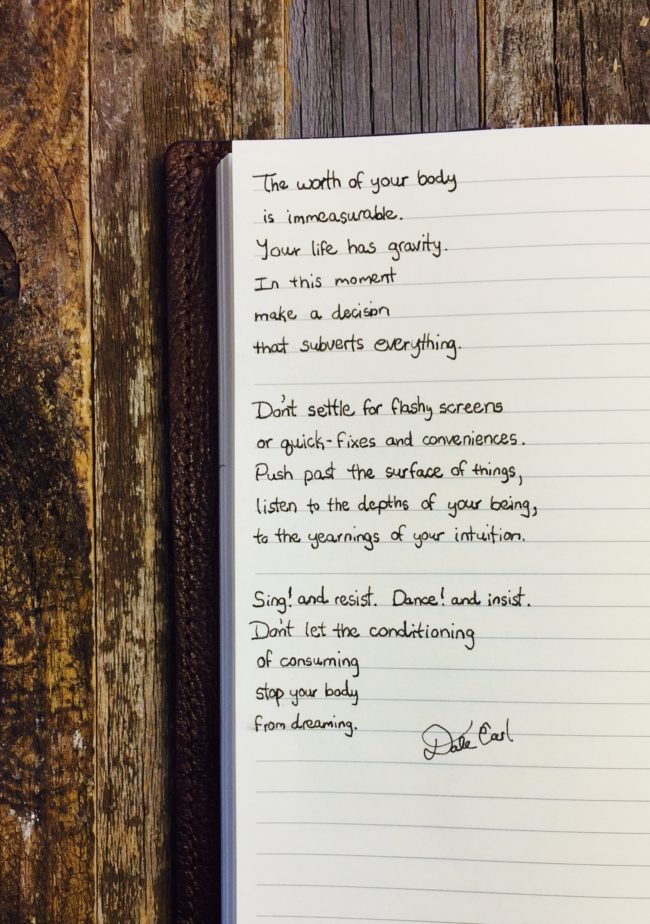 The worth of your body
is immeasurable.
Your life has gravity.
In this moment
make a decision
that subverts everything.
Don't settle for flashy screens
or quick-fixes and conveniences.
Push past the surface of things,
listen to the depths of your being,
to the yearnings of your intuition.
Sing! and resist. Dance! and insist.
Don't let the conditioning
of consuming
stop your body
from dreaming.
Dale Earl